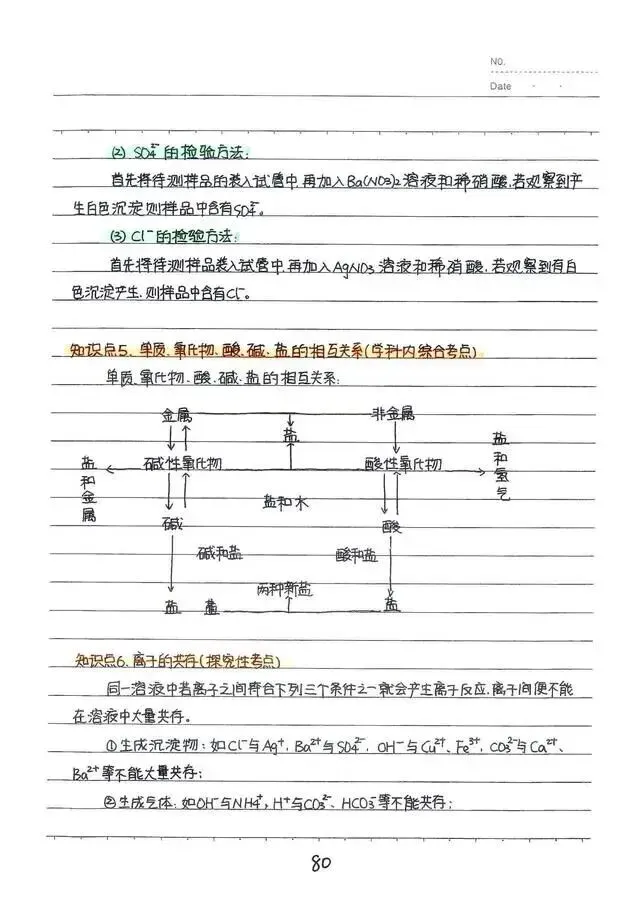 No.
Date
(2) SO₄²⁻的检验方法:
首先将待测样品的装入试管中,再加入Ba(NO3)2溶液和稀硝酸,若观察到产
生白色沉淀则样品中含有SO₄²⁻。
(3) Cl⁻的检验方法:
首先将待测样品装入试管中,再加入AgNO3溶液和稀硝酸,若观察到有白
色沉淀产生,则样品中含有Cl⁻。
知识点5、单质、氧化物、酸、碱、盐的相互关系(学科内综合考点)
单质、氧化物、酸、碱、盐的相互关系:
金属 非金属
盐
盐和金属 碱性氧化物 酸性氧化物 盐和氢气
盐和水
碱 酸
碱和盐 酸和盐
两种新盐
盐 盐 盐
知识点6、离子的共存(探究性考点)
同一溶液中若离子之间符合下列三个条件之一就会产生离子反应,离子间便不能
在溶液中大量共存。
①生成沉淀物:如Cl⁻与Ag⁺、Ba²⁺与SO₄²⁻、OH⁻与Cu²⁺、Fe³⁺、CO₃²⁻与Ca²⁺、
Ba²⁺等不能大量共存;
②生成气体:如OH⁻与NH4⁺,H⁺与CO₃²⁻、HCO₃⁻等不能共存;
80